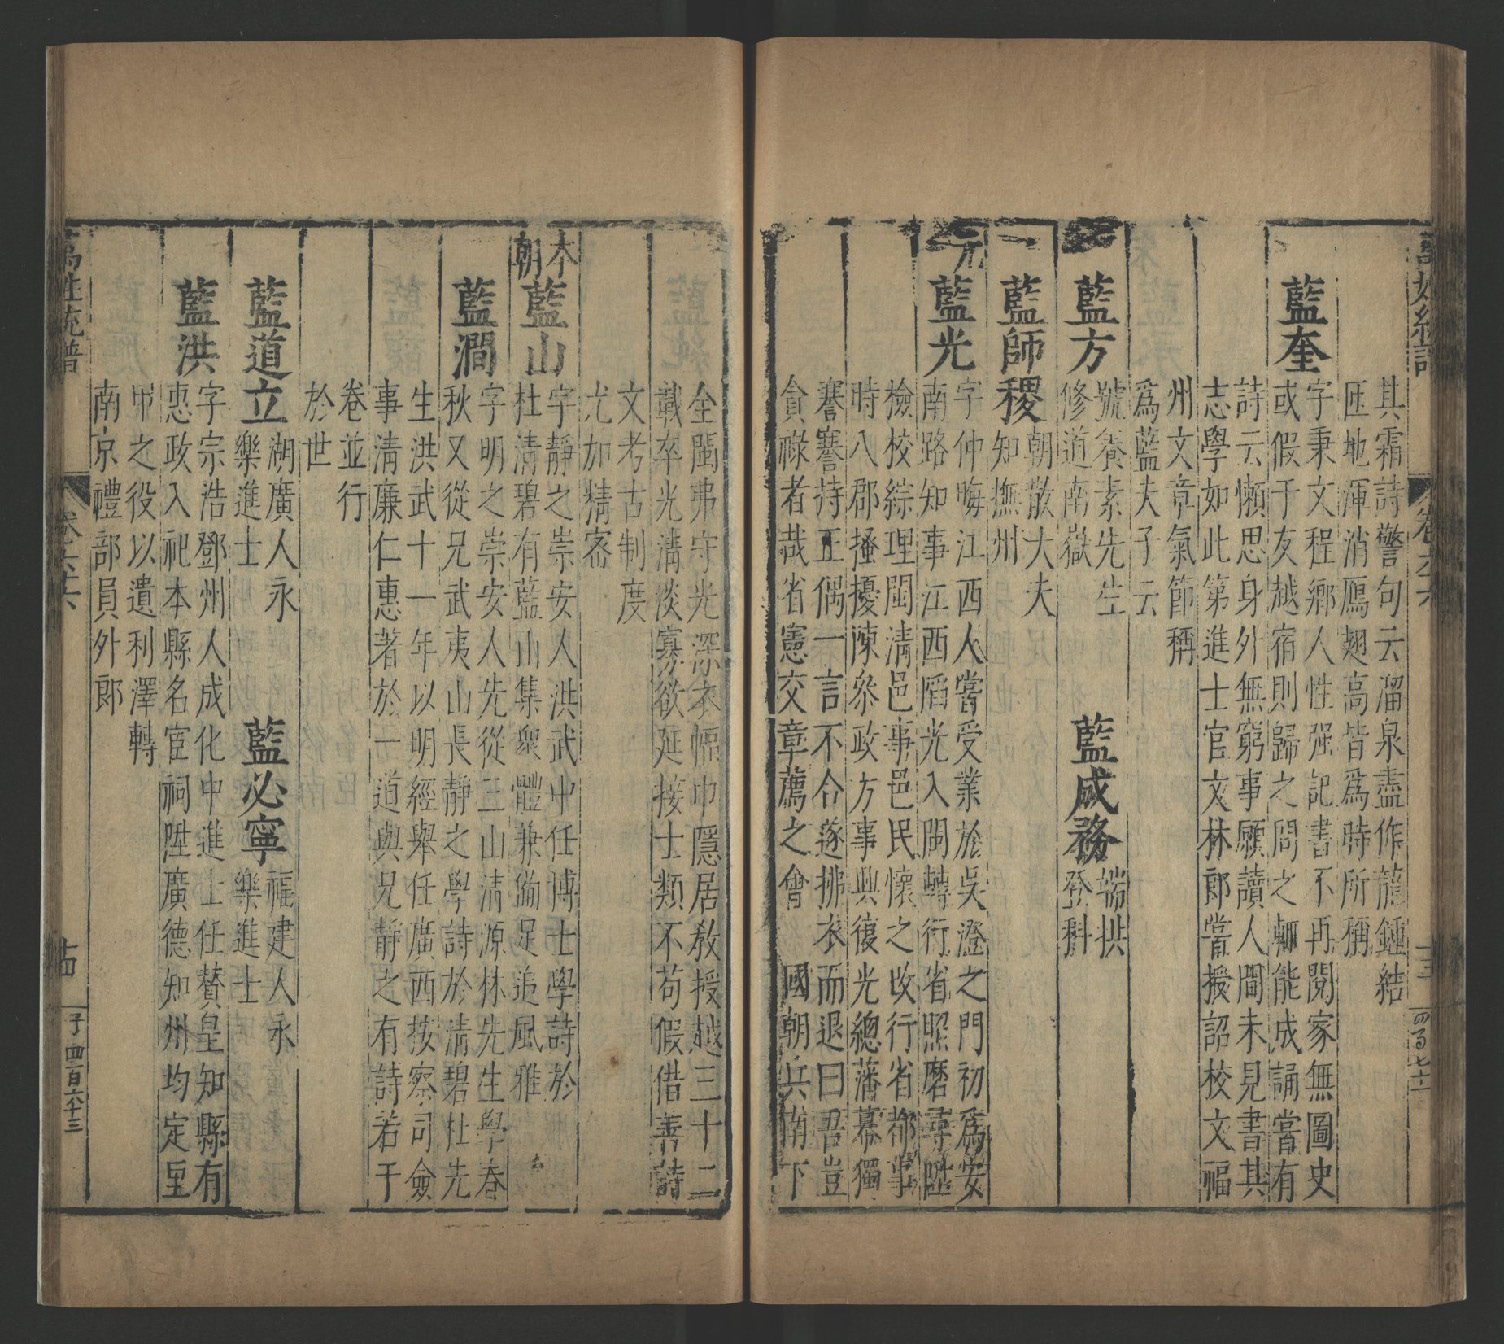 其霜詩警句云溜泉盡作龍鍾結
匝地渾消鴈翅高皆爲時所稱
藍奎
字秉文程鄉人性强記書不再閱家無圖史
或假于友越宿則歸之問之輙能成誦嘗有
詩云懶思身外無窮事願讀人間未見書其
志學如此第進士官文林郎嘗授詔校文福
州文章氣節稱
爲藍夫子云
藍方
號養素先生
修道南嶽
藍成務
端拱
登科
藍師稷
朝散大夫
知撫州
元
藍光
字仲晦江西人嘗受業於吳澄之門初爲安
南路知事江西陷光入閩轉行省照磨尋陞
檢校綜理閩清邑事邑民懷之改行省都事
時八郡搔擾陳叅政方事興復光總藩幕獨
謇謇持正偶一言不合遂拂衣而退曰吾豈
貪祿者哉省憲交章薦之會 國朝兵南下
全閩弗守光深衣幅巾隱居教授越三十二
載卒光清淡寡欲延接士類不苟假借善詩
文考古制度
尤加精密
本朝
藍山
字靜之崇安人洪武中任博士學詩於
杜清碧有藍山集衆體兼備足追風雅
藍澗
字明之崇安人先從三山清源林先生學春
秋又從兄武夷山長靜之學詩於清碧杜先
生洪武十一年以明經舉任廣西按察司僉
事清廉仁惠著於一道與兄靜之有詩若干
卷並行
於世
藍道立
湖廣人永
樂進士
藍必寧
福建人永
樂進士
藍洪
字宗浩鄧州人成化中進士任賛皇知縣有
惠政入祀本縣名宦祠陞廣德知州均定里
甲之役以遺利澤轉
南京禮部員外郎
萬姓統譜
卷六十六
子四百六十三